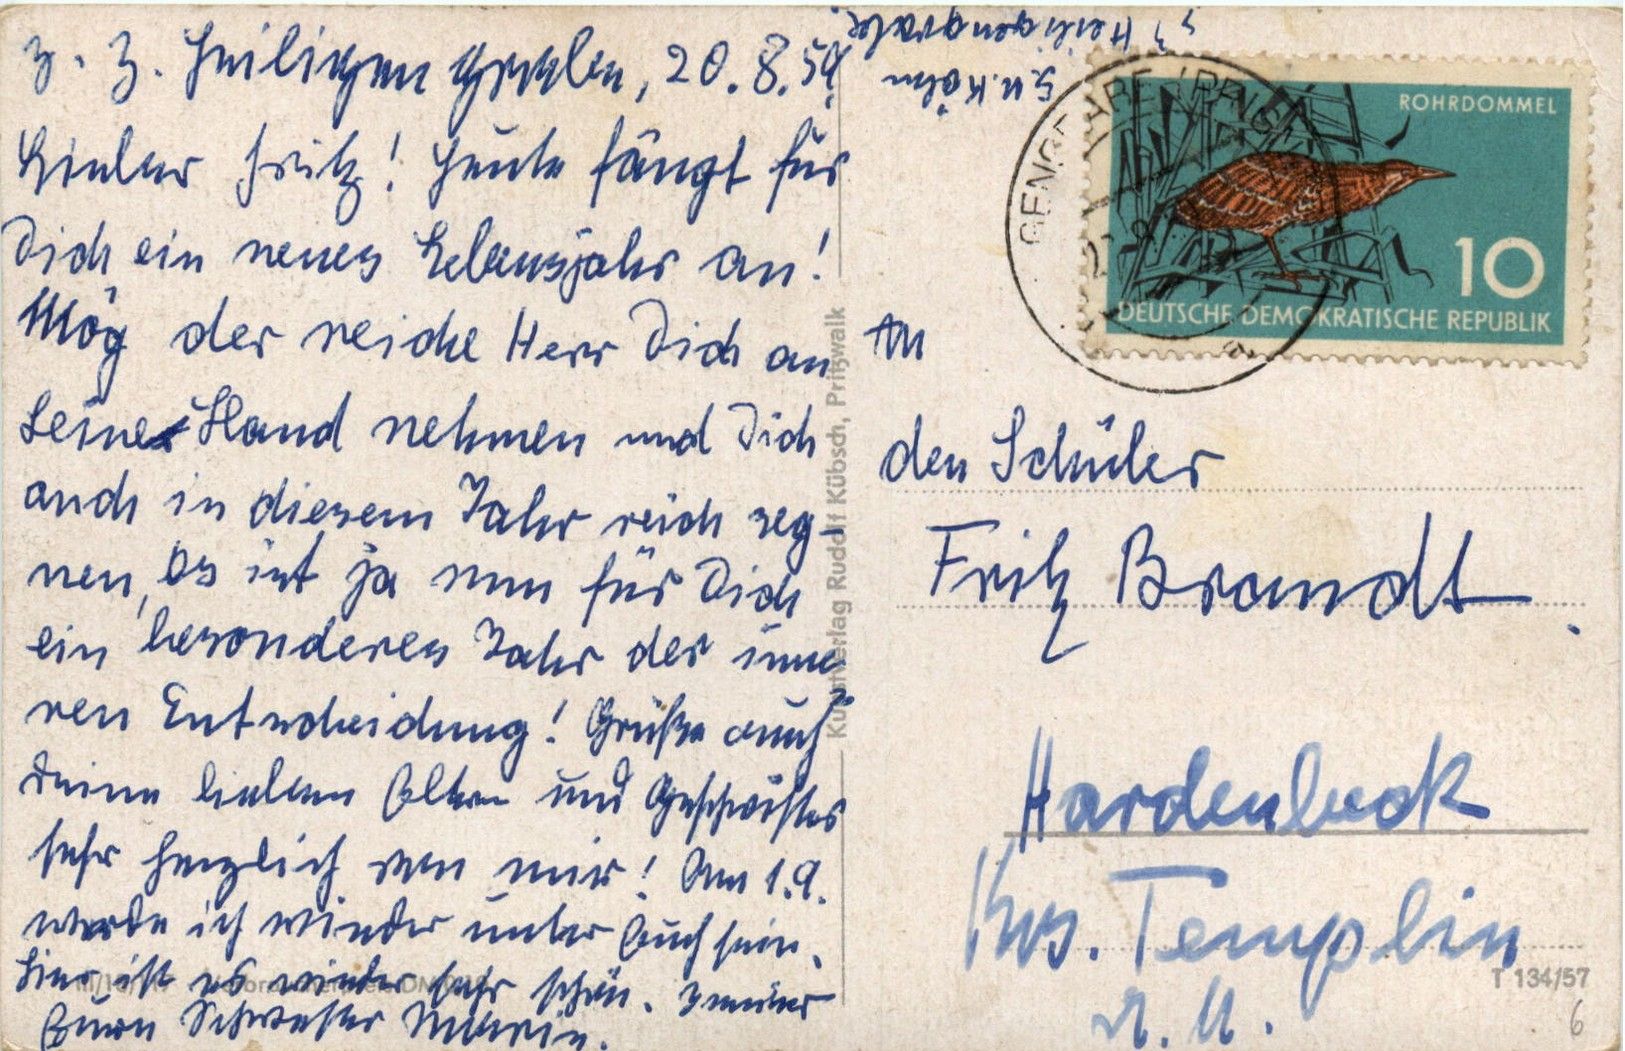 z. Z. Heiligengrabe, 20.8.59.
Lieber Fritz! Heute fängt für
Dich ein neues Lebensjahr an!
Mög der reiche Herr Dich an
Seine Hand nehmen und Dich
auch in diesem Jahr reich seg-
nen, es ist ja nun für Dich
ein besonderes Jahr der inne-
ren Entscheidung! Grüße auch
Deine lieben Eltern und Geschwister
sehr herzlich von mir! Am 1.9.
werde ich wieder unter Euch sein.
Hier ist es wieder sehr schön. Immer
Eure Schwester Marin.
Heiligengrabe
ROHRDOMMEL
10
DEUTSCHE DEMOKRATISCHE REPUBLIK
Kunstverlag Rudolf Kübsch, Pritzwalk
An
den Schüler
Fritz Brandt.
Hardenbeck
Krs. Templin
U. M.
T 134/57
6